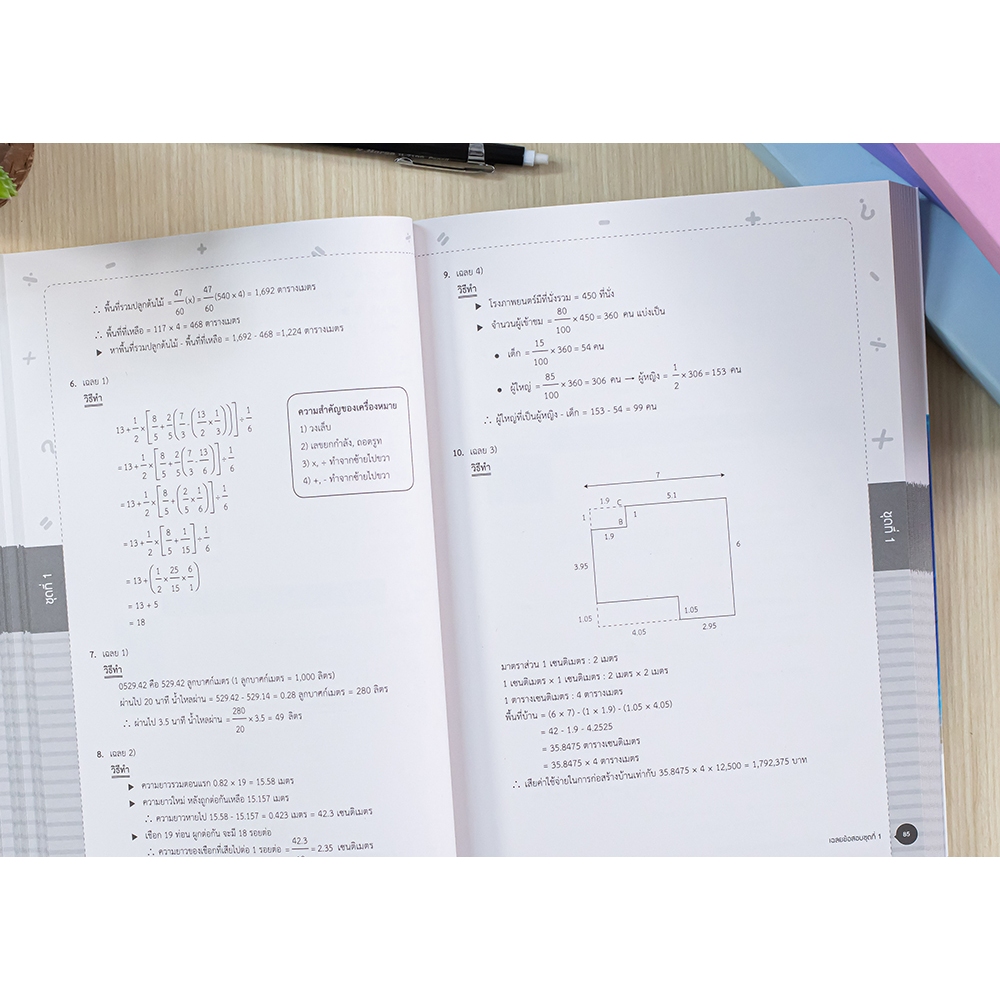 ∴ พื้นที่รวมปลูกต้นไม้ = 47/60 (x) = 47/60 (540 x 4) = 1,692 ตารางเมตร
∴ พื้นที่ที่เหลือ = 117 x 4 = 468 ตารางเมตร
▶ หาพื้นที่รวมปลูกต้นไม้ - พื้นที่ที่เหลือ = 1,692 - 468 =1,224 ตารางเมตร
6. เฉลย 1)
วิธีทำ
13 + 1/2 × [8/5 + 2/5 (7/3 - (13/2 × 1/3))] ÷ 1/6
= 13 + 1/2 × [8/5 + 2/5 (7/3 - 13/6)] ÷ 1/6
= 13 + 1/2 × [8/5 + (2/5 × 1/6)] ÷ 1/6
= 13 + 1/2 × [8/5 + 1/15] ÷ 1/6
= 13 + (1/2 × 25/15 × 6/1)
= 13 + 5
= 18
ความสำคัญของเครื่องหมาย
1) วงเล็บ
2) เลขยกกำลัง, ถอดรูท
3) x, ÷ ทำจากซ้ายไปขวา
4) +, - ทำจากซ้ายไปขวา
7. เฉลย 1)
วิธีทำ
0529.42 คือ 529.42 ลูกบาศก์เมตร (1 ลูกบาศก์เมตร = 1,000 ลิตร)
ผ่านไป 20 นาที น้ำไหลผ่าน = 529.42 - 529.14 = 0.28 ลูกบาศก์เมตร = 280 ลิตร
∴ ผ่านไป 3.5 นาที น้ำไหลผ่าน = 280/20 × 3.5 = 49 ลิตร
8. เฉลย 2)
วิธีทำ
▶ ความยาวรวมตอนแรก 0.82 × 19 = 15.58 เมตร
▶ ความยาวใหม่ หลังถูกต่อกันเหลือ 15.157 เมตร
∴ ความยาวหายไป 15.58 - 15.157 = 0.423 เมตร = 42.3 เซนติเมตร
▶ เชือก 19 ท่อน ผูกต่อกัน จะมี 18 รอยต่อ
∴ ความยาวของเชือกที่เสียไปต่อ 1 รอยต่อ = 42.3 = 2.35 เซนติเมตร
ชุดที่ 1
9. เฉลย 4)
วิธีทำ
▶ โรงภาพยนตร์มีที่นั่งรวม = 450 ที่นั่ง
▶ จำนวนผู้เข้าชม = 80/100 × 450 = 360 คน แบ่งเป็น
• เด็ก = 15/100 × 360 = 54 คน
• ผู้ใหญ่ = 85/100 × 360 = 306 คน → ผู้หญิง = 1/2 × 306 = 153 คน
∴ ผู้ใหญ่ที่เป็นผู้หญิง - เด็ก = 153 - 54 = 99 คน
10. เฉลย 3)
วิธีทำ
7
1.9 C 5.1
1 B 1
1.9
3.95 6
1.05 1.05
4.05 2.95
มาตราส่วน 1 เซนติเมตร : 2 เมตร
1 เซนติเมตร × 1 เซนติเมตร : 2 เมตร × 2 เมตร
1 ตารางเซนติเมตร : 4 ตารางเมตร
พื้นที่บ้าน = (6 × 7) - (1 × 1.9) - (1.05 × 4.05)
= 42 - 1.9 - 4.2525
= 35.8475 ตารางเซนติเมตร
= 35.8475 × 4 ตารางเมตร
∴ เสียค่าใช้จ่ายในการก่อสร้างบ้านเท่ากับ 35.8475 × 4 × 12,500 = 1,792,375 บาท
ชุดที่ 1
เฉลยข้อสอบชุดที่ 1 85